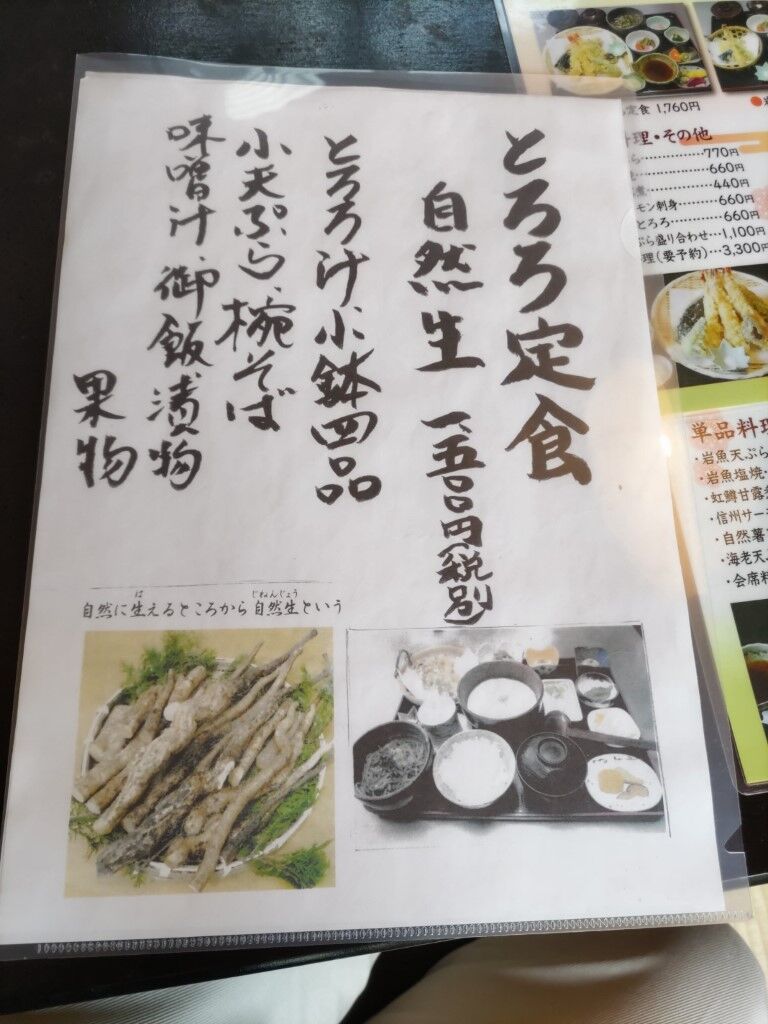 とろろ定食
自然生 一、五〇〇円(税別)
とろろ汁、小鉢四品
小天ぷら、椀そば
味噌汁、御飯、漬物
果物
自然に生えるところから自然生という
は
じねんじょう
定食 1,760円
理・その他
ら…………770円
660円
煮…………440円
モン刺身…………660円
とろろ…………660円
ぷら盛り合わせ…1,100円
理(要予約)…3,300円
単品料理
・岩魚天ぷら
・岩魚塩焼
・虹鱒甘露
・信州サー
・自然薯
・海老天ぷ
・会席料